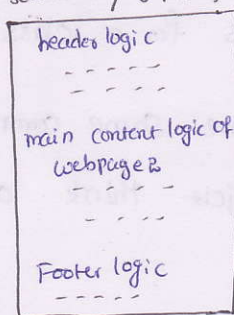 header logic
main content logic of
webpage 2
Footer logic